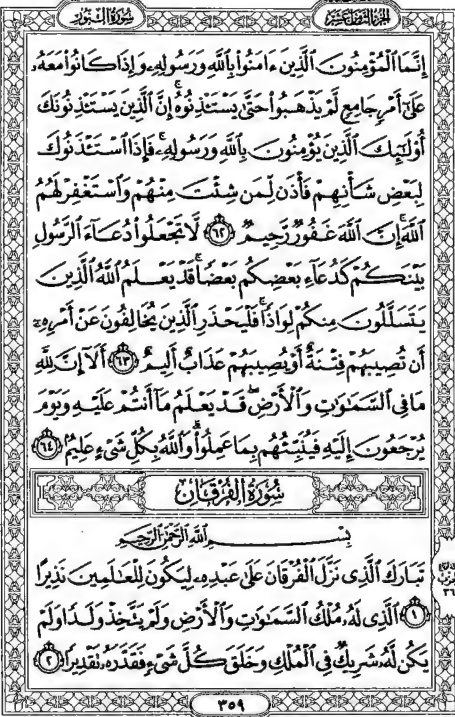 الجزء الثامن عشر
سورة النور
إِنَّمَا الْمُؤْمِنُونَ الَّذِينَ ءَامَنُوا۟ بِاللَّهِ وَرَسُولِهِۦ وَإِذَا كَانُوا۟ مَعَهُۥ
عَلَىٰٓ أَمْرٍ جَامِعٍ لَّمْ يَذْهَبُوا۟ حَتَّىٰ يَسْتَـْٔذِنُوهُ ۚ إِنَّ الَّذِينَ يَسْتَـْٔذِنُونَكَ
أُو۟لَٰٓئِكَ الَّذِينَ يُؤْمِنُونَ بِاللَّهِ وَرَسُولِهِۦ ۚ فَإِذَا اسْتَـْٔذَنُوكَ
لِبَعْضِ شَأْنِهِمْ فَأْذَن لِّمَن شِئْتَ مِنْهُمْ وَاسْتَغْفِرْ لَهُمُ
اللَّهَ ۚ إِنَّ اللَّهَ غَفُورٌ رَّحِيمٌ ٦٢ لَّا تَجْعَلُوا۟ دُعَآءَ الرَّسُولِ
بَيْنَكُمْ كَدُعَآءِ بَعْضِكُم بَعْضًا ۚ قَدْ يَعْلَمُ اللَّهُ الَّذِينَ
يَتَسَلَّلُونَ مِنكُمْ لِوَاذًا ۚ فَلْيَحْذَرِ الَّذِينَ يُخَالِفُونَ عَنْ أَمْرِهِۦٓ
أَن تُصِيبَهُمْ فِتْنَةٌ أَوْ يُصِيبَهُمْ عَذَابٌ أَلِيمٌ ٦٣ أَلَآ إِنَّ لِلَّهِ
مَا فِى السَّمَٰوَٰتِ وَالْأَرْضِ ۖ قَدْ يَعْلَمُ مَآ أَنتُمْ عَلَيْهِ وَيَوْمَ
يُرْجَعُونَ إِلَيْهِ فَيُنَبِّئُهُم بِمَا عَمِلُوا۟ ۗ وَاللَّهُ بِكُلِّ شَىْءٍ عَلِيمٌۢ ٦٤
سورة الفرقان
بِسْمِ اللَّهِ الرَّحْمَٰنِ الرَّحِيمِ
تَبَارَكَ الَّذِى نَزَّلَ الْفُرْقَانَ عَلَىٰ عَبْدِهِۦ لِيَكُونَ لِلْعَٰلَمِينَ نَذِيرًا
١ الَّذِى لَهُۥ مُلْكُ السَّمَٰوَٰتِ وَالْأَرْضِ وَلَمْ يَتَّخِذْ وَلَدًا وَلَمْ
يَكُن لَّهُۥ شَرِيكٌ فِى الْمُلْكِ وَخَلَقَ كُلَّ شَىْءٍ فَقَدَّرَهُۥ تَقْدِيرًا ٢
٣٦
٣٥٩